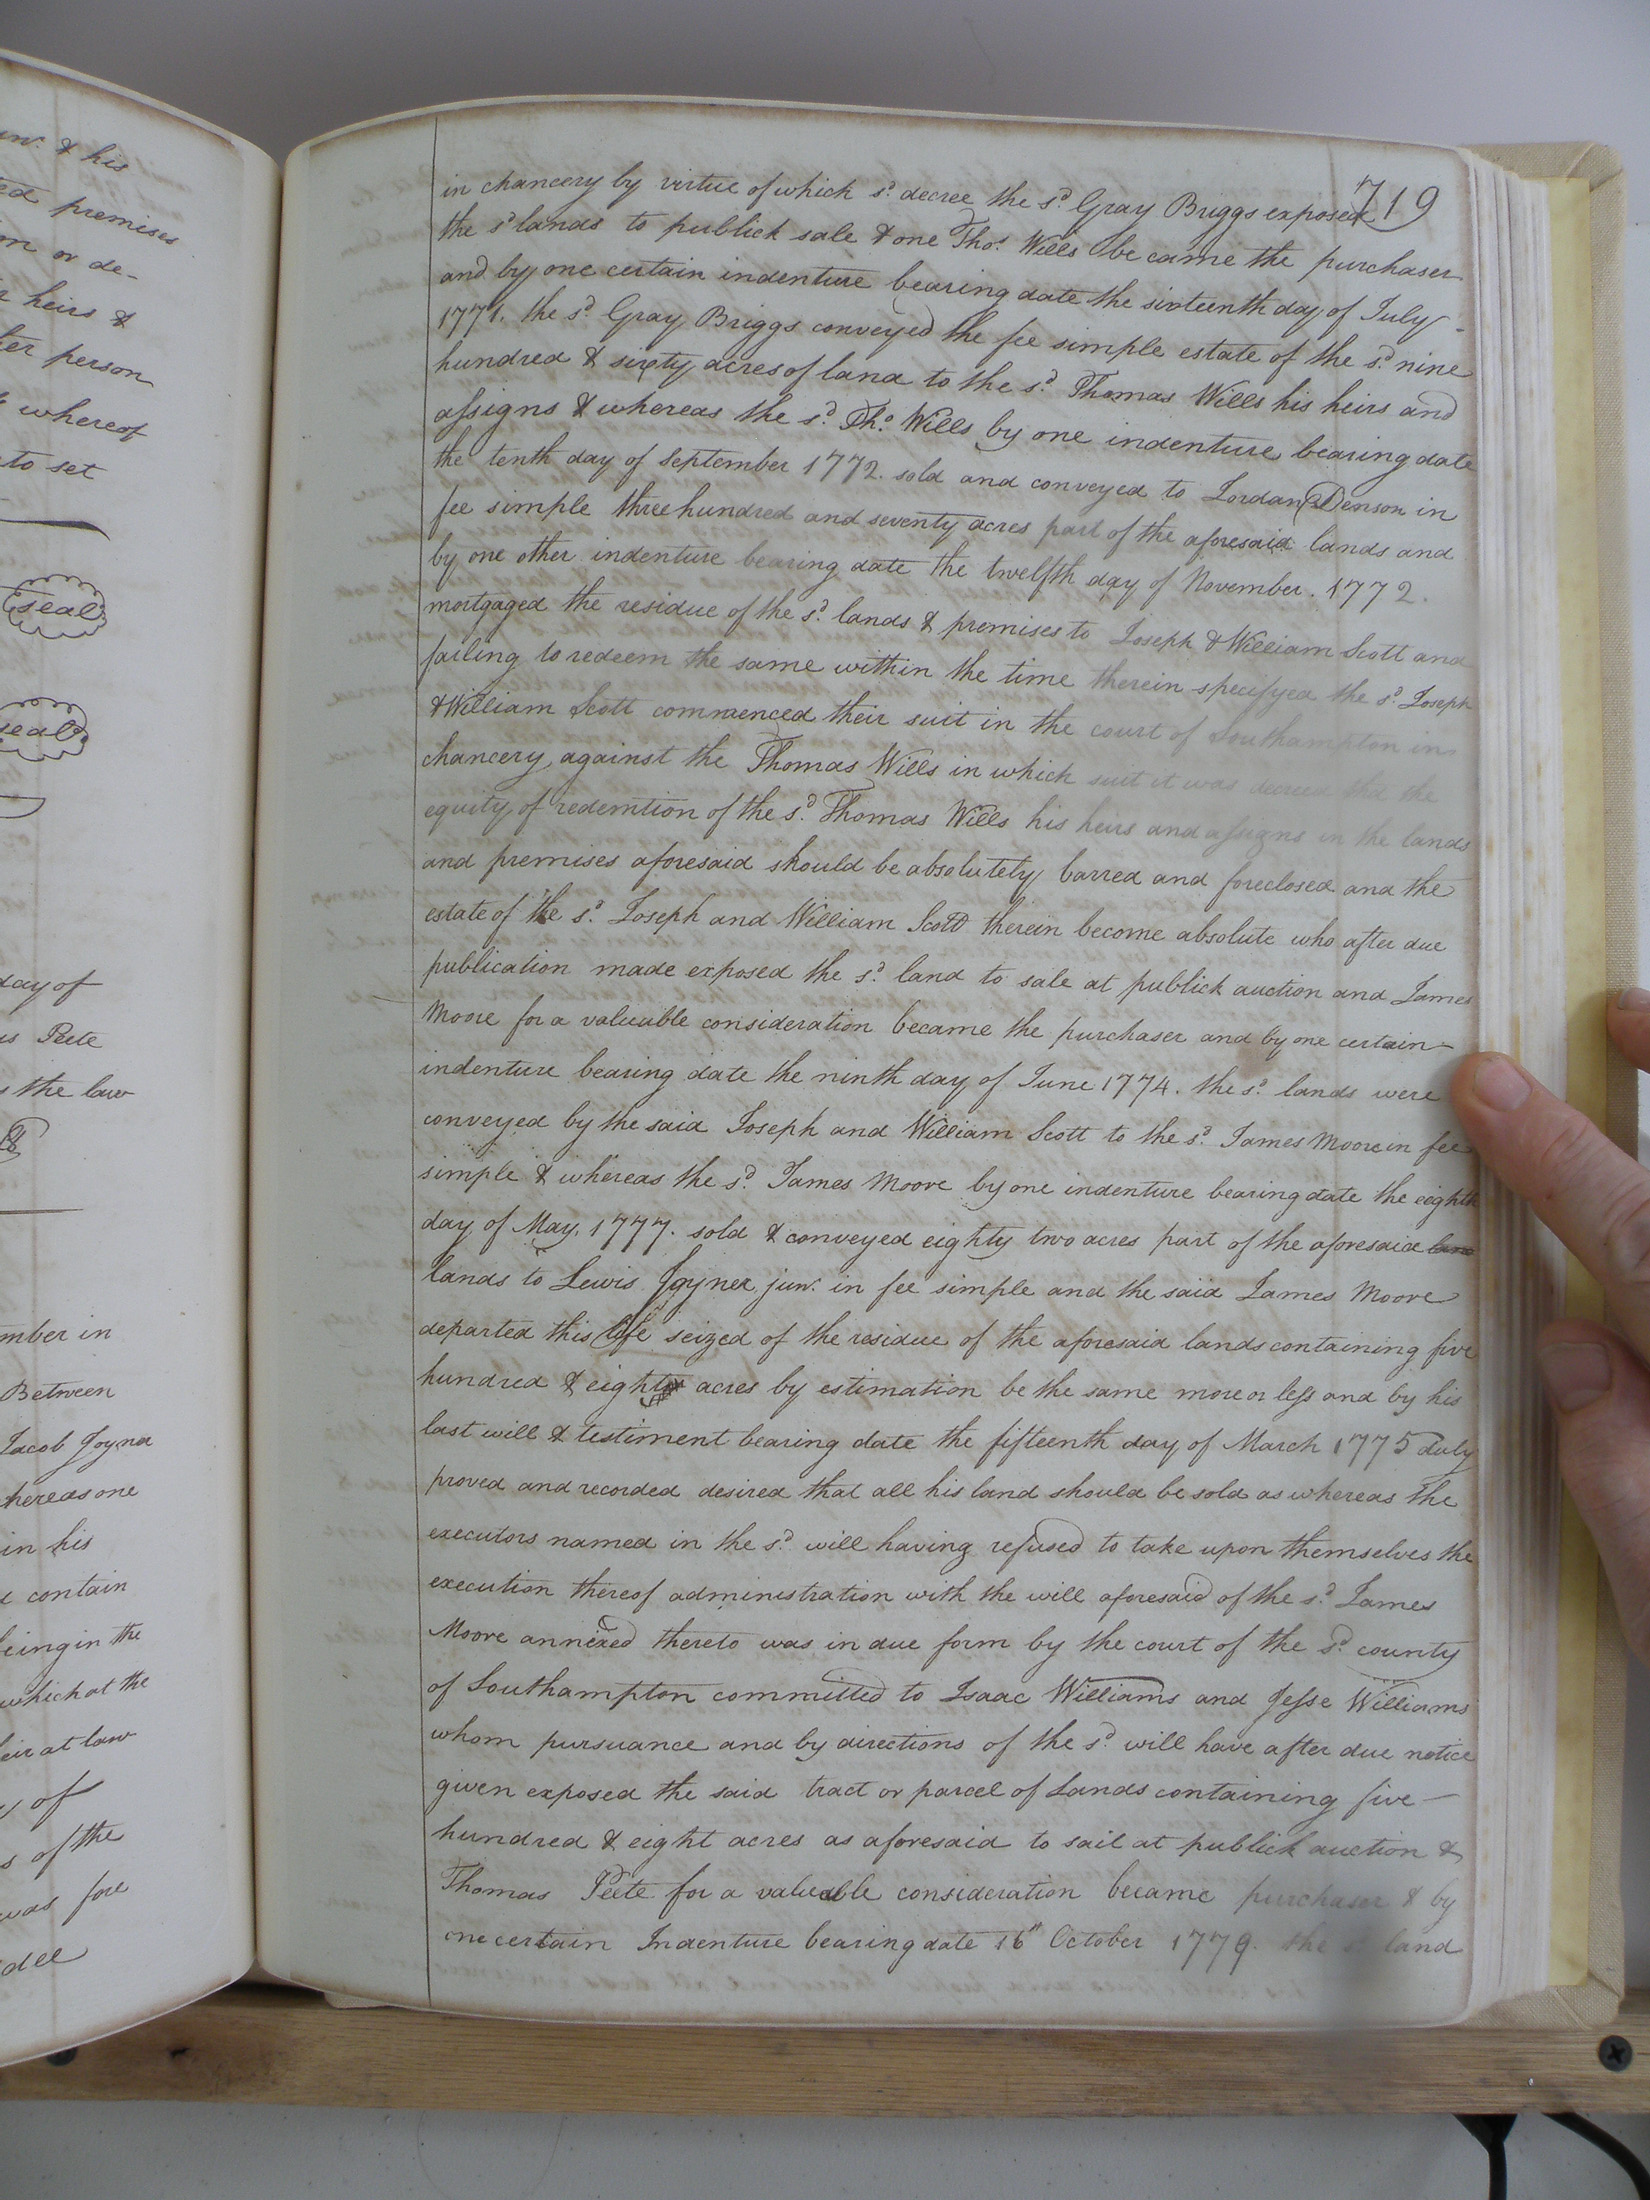 unr. & his
ted premises
on or de-
r heirs &
her person
whereof
to set
seal
seal
day of
us Peete
s the law
mber in
Between
Jacob Joyner
hereas one
in his
& contain
being in the
which at the
heir at law
y of
s of the
was fore
719
in chancery by virtue of which sd. decree the sd. Gray Briggs exposed
the sd lands to publick sale & one Thos. Wills be came the purchaser
and by one certain indenture bearing date the sixteenth day of July -
1771. the sd. Gray Briggs conveyed the fee simple estate of the sd. nine
hundred & sixty acres of land to the sd. Thomas Wills his heirs and
assigns & whereas the sd. Tho. Wills by one indenture bearing date
the tenth day of September 1772. sold and conveyed to Jordan Denson in
fee simple three hundred and seventy acres part of the aforesaid lands and
by one other indenture bearing date the twelfth day of November. 1772.
mortgaged the residue of the sd. lands & premises to Joseph & William Scott and
failing to redeem the same within the time therein specifyed the sd. Joseph
& William Scott commenced their suit in the court of Southampton in
chancery against the Thomas Wills in which suit it was decreed that the
equity of redemtion of the sd. Thomas Wills his heirs and assigns in the lands
and premises aforesaid should be absolutely barred and foreclosed and the
estate of the sd. Joseph and William Scott therein become absolute who after due
publication made exposed the sd. land to sale at publick auction and James
Moore for a valuable consideration became the purchaser and by one certain -
indenture bearing date the ninth day of June 1774. the sd. lands were
conveyed by the said Joseph and William Scott to the sd. James Moore in fee
simple & whereas the sd. James Moore by one indenture bearing date the eighth
day of May. 1777. sold & conveyed eighty two acres part of the aforesaid land
lands to Lewis Joyner junr. in fee simple and the said James Moore
departed this life seized of the residue of the aforesaid lands containing five
hundred & eight acres by estimation be the same more or less and by his
last will & testiment bearing date the fifteenth day of March 1775 duly
proved and recorded desired that all his land should be sold as whereas the
executors named in the sd. will having refused to take upon themselves the
execution thereof administration with the will aforesaid of the sd. James
Moore annexed thereto was in due form by the court of the sd. county
of Southampton committed to Isaac Williams and Jesse Williams
whom pursuance and by directions of the sd. will have after due notice
given exposed the said tract or parcel of Lands containing five -
hundred & eight acres as aforesaid to sail at publick auction &
Thomas Peete for a valuable consideration became purchaser & by
one certain Indenture bearing date 16" October 1779. the sd land